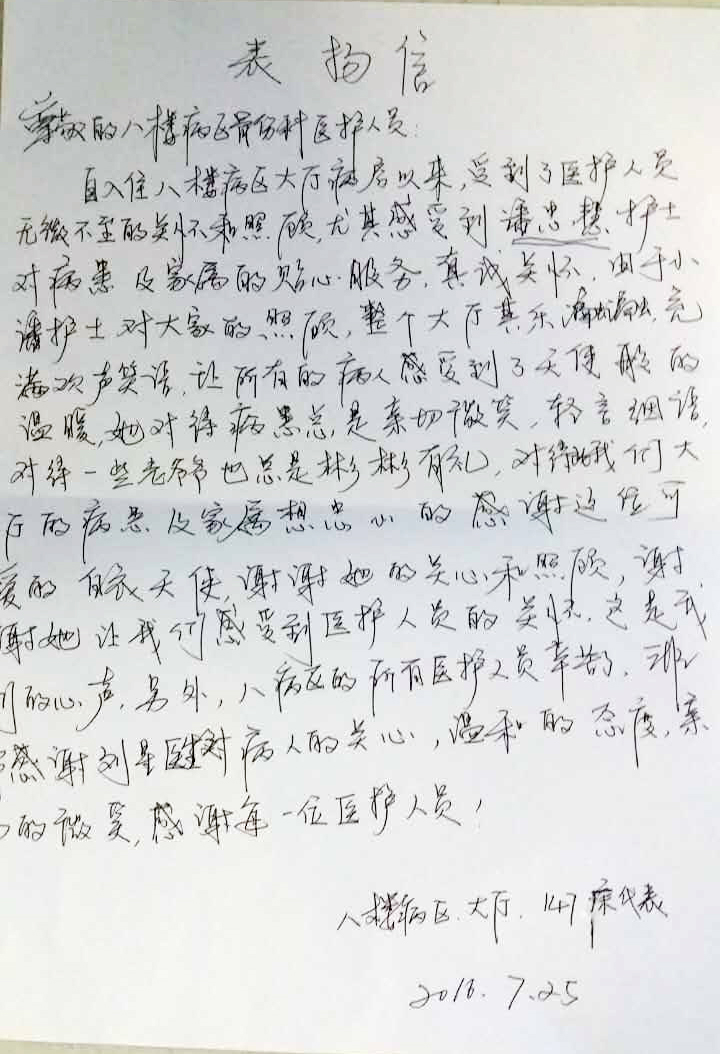 表扬信
尊敬的八楼病区骨伤科医护人员:
自入住八楼病区大厅病房以来,受到了医护人员
无微不至的关怀和照顾,尤其感受到潘忠慧护士
对病患及家属的贴心服务,真诚关怀,由于小
潘护士对大家的照顾,整个大厅其乐融融,充
满欢声笑语,让所有的病人感受到了天使般的
温暖,她对待病患总是亲切微笑,轻言细语,
对待一些老爷爷也总是彬彬有礼,对待我们大
厅的病患及家属想忠心的感谢这位可
爱的白衣天使,谢谢她的关心和照顾,谢
谢她让我们感受到医护人员的关怀.这是我
们的心声.另外,八病区的所有医护人员辛苦了,
感谢刘星医生对病人的关心,温和的态度,亲
切的微笑,感谢每一位医护人员!
八楼病区.大厅.147床代表
2016.7.25